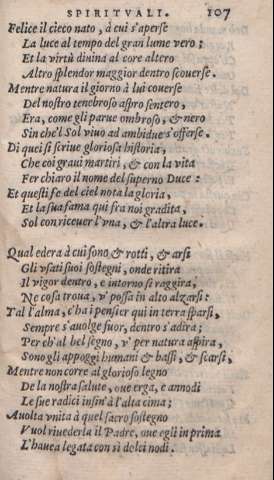 SPIRITVALI. 107
Felice il cieco nato, à cui s'aperse
La luce al tempo del gran lume vero;
Et la virtù diuina al core altero
Altro splendor maggior dentro scouerse.
Mentre natura il giorno à lui couerse
Del nostro tenebroso astro sentero,
Era, come gli parue ombroso, & nero
Sin che'l Sol viuo ad ambidue s'offerse.
Di quei si scriue gloriosa historia,
Che coi graui martiri, & con la vita
Fer chiaro il nome del superno Duce:
Et questi fe del ciel nota la gloria,
Et la sua fama qui fra noi gradita,
Sol con riceuer l'vna, & l'altra luce.
Qual edera à cui sono & rotti, & arsi
Gli vsati suoi sostegni, onde ritira
Il vigor dentro, e intorno si raggira,
Ne cosa troua, v' possa in alto alzarsi:
Tal l'alma, c'ha i pensier qui in terra sparsi,
Sempre s'auolge fuor, dentro s'adira;
Per ch'al bel segno, v' per natura aspira,
Sono gli appoggi humani & bassi, & scarsi,
Mentre non corre al glorioso legno
De la nostra salute, oue erga, e annodi
Le sue radici insin'à l'alta cima;
Auolta vnita à quel sacro sostegno
Vuol riuederla il Padre, oue egli in prima
L'hauea legata con sì dolci nodi.